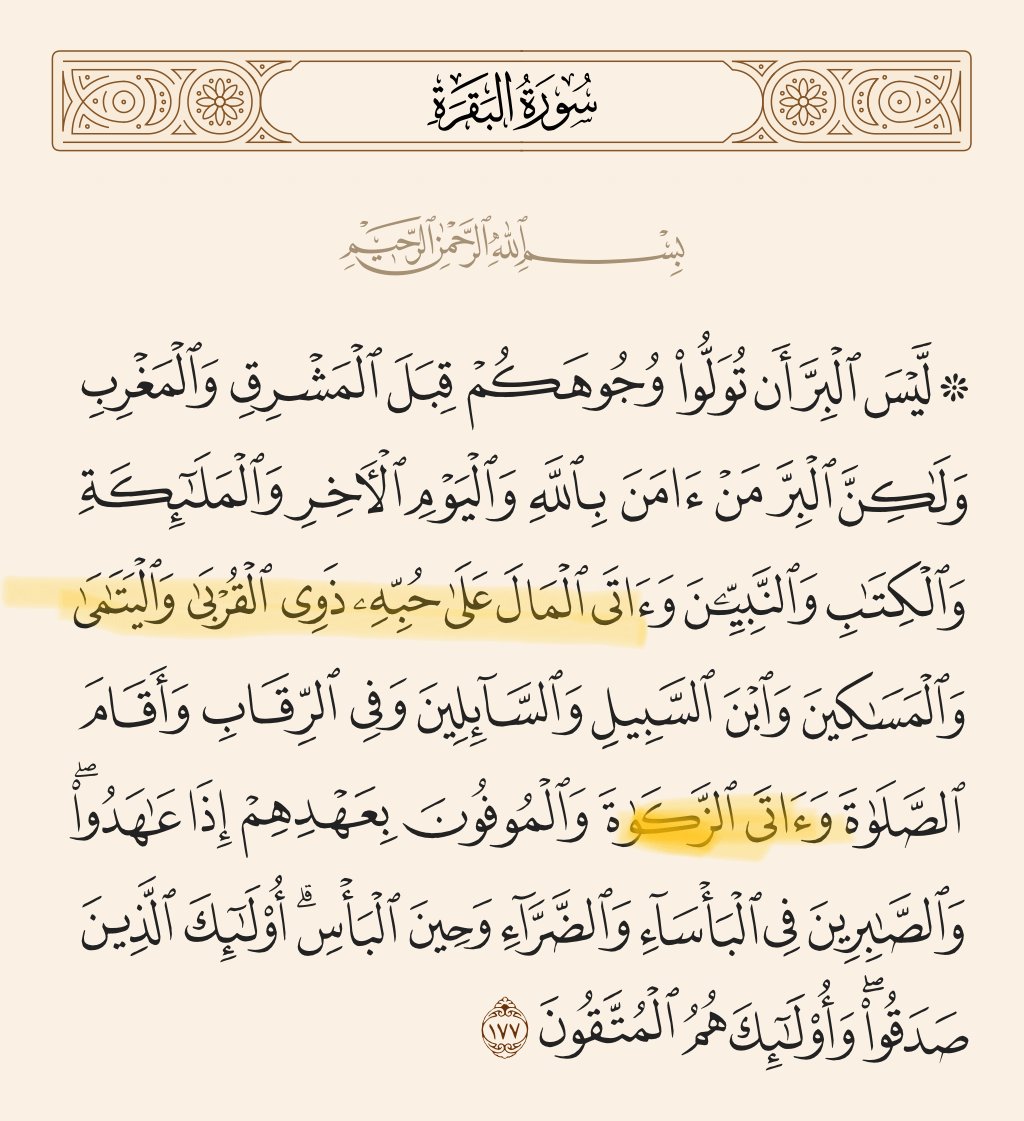 سُورَةُ البَقَرَةِ
بِسْمِ ٱللَّهِ ٱلرَّحْمَٰنِ ٱلرَّحِيمِ
۞ لَّيْسَ ٱلْبِرَّ أَن تُوَلُّوا۟ وُجُوهَكُمْ قِبَلَ ٱلْمَشْرِقِ وَٱلْمَغْرِبِ
وَلَٰكِنَّ ٱلْبِرَّ مَنْ ءَامَنَ بِٱللَّهِ وَٱلْيَوْمِ ٱلْأَخِرِ وَٱلْمَلَٰٓئِكَةِ
وَٱلْكِتَٰبِ وَٱلنَّبِيِّـۧنَ وَءَاتَى ٱلْمَالَ عَلَىٰ حُبِّهِۦ ذَوِى ٱلْقُرْبَىٰ وَٱلْيَتَٰمَىٰ
وَٱلْمَسَٰكِينَ وَٱبْنَ ٱلسَّبِيلِ وَٱلسَّآئِلِينَ وَفِى ٱلرِّقَابِ وَأَقَامَ
ٱلصَّلَوٰةَ وَءَاتَى ٱلزَّكَوٰةَ وَٱلْمُوفُونَ بِعَهْدِهِمْ إِذَا عَٰهَدُوا۟ۖ
وَٱلصَّٰبِرِينَ فِى ٱلْبَأْسَآءِ وَٱلضَّرَّآءِ وَحِينَ ٱلْبَأْسِۗ أُو۟لَٰٓئِكَ ٱلَّذِينَ
صَدَقُوا۟ۖ وَأُو۟لَٰٓئِكَ هُمُ ٱلْمُتَّقُونَ ١٧٧